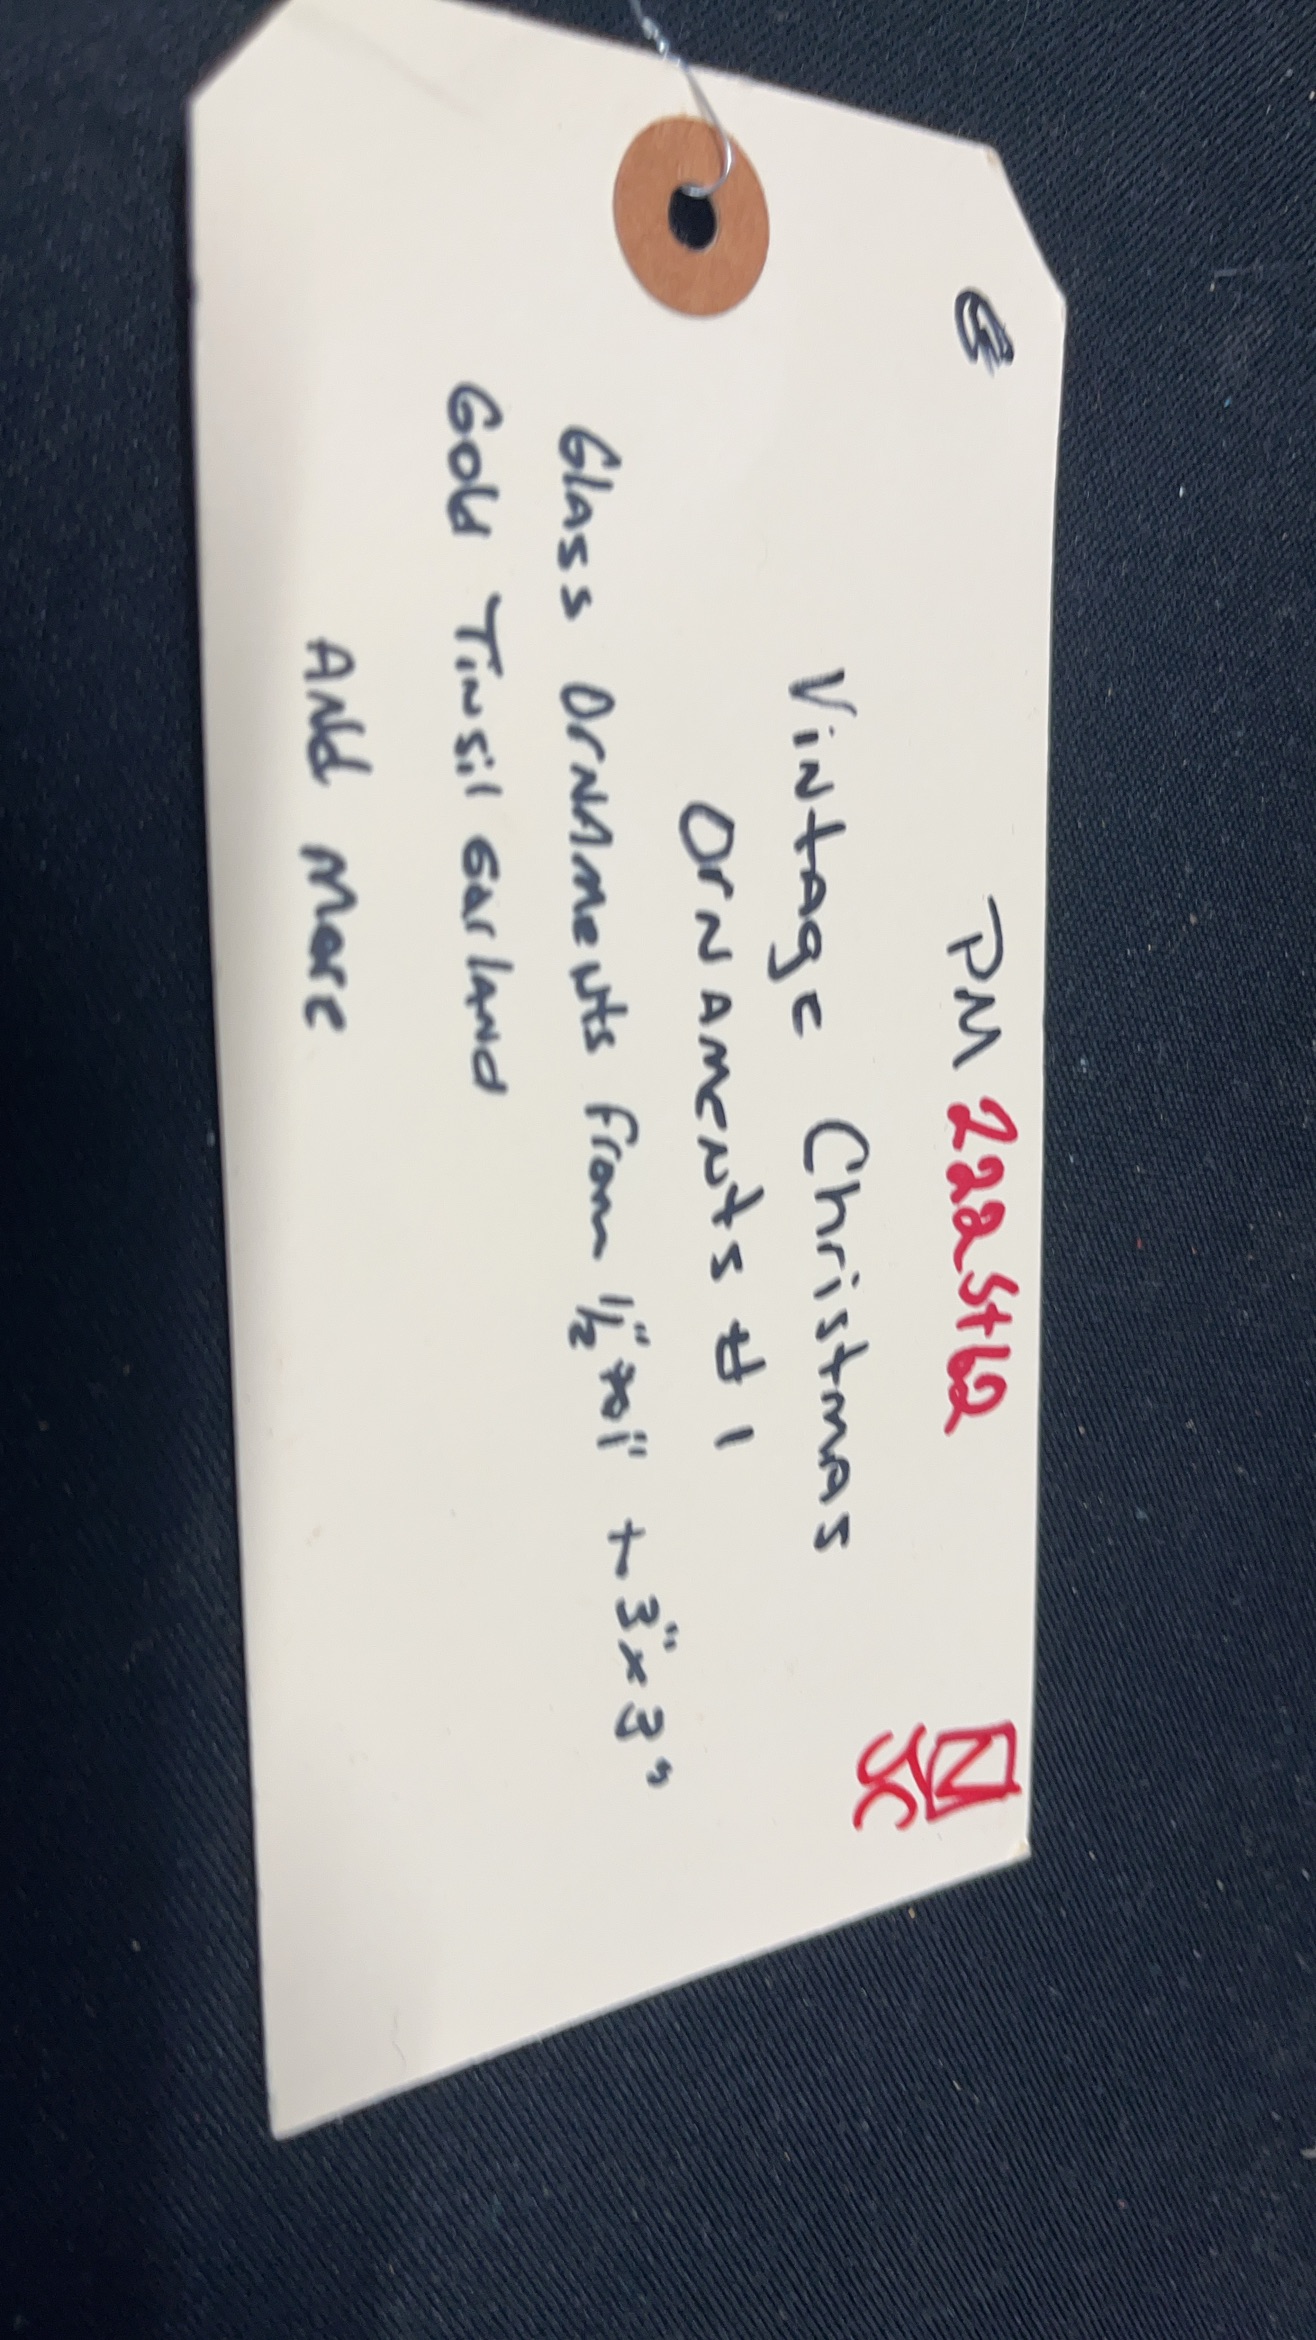 PM 222St62
N
JC
Vintage Christmas
Ornaments #1
Glass Ornaments from 1/2" to 1" + 3" x 3"
Gold Tinsil Garland
And More